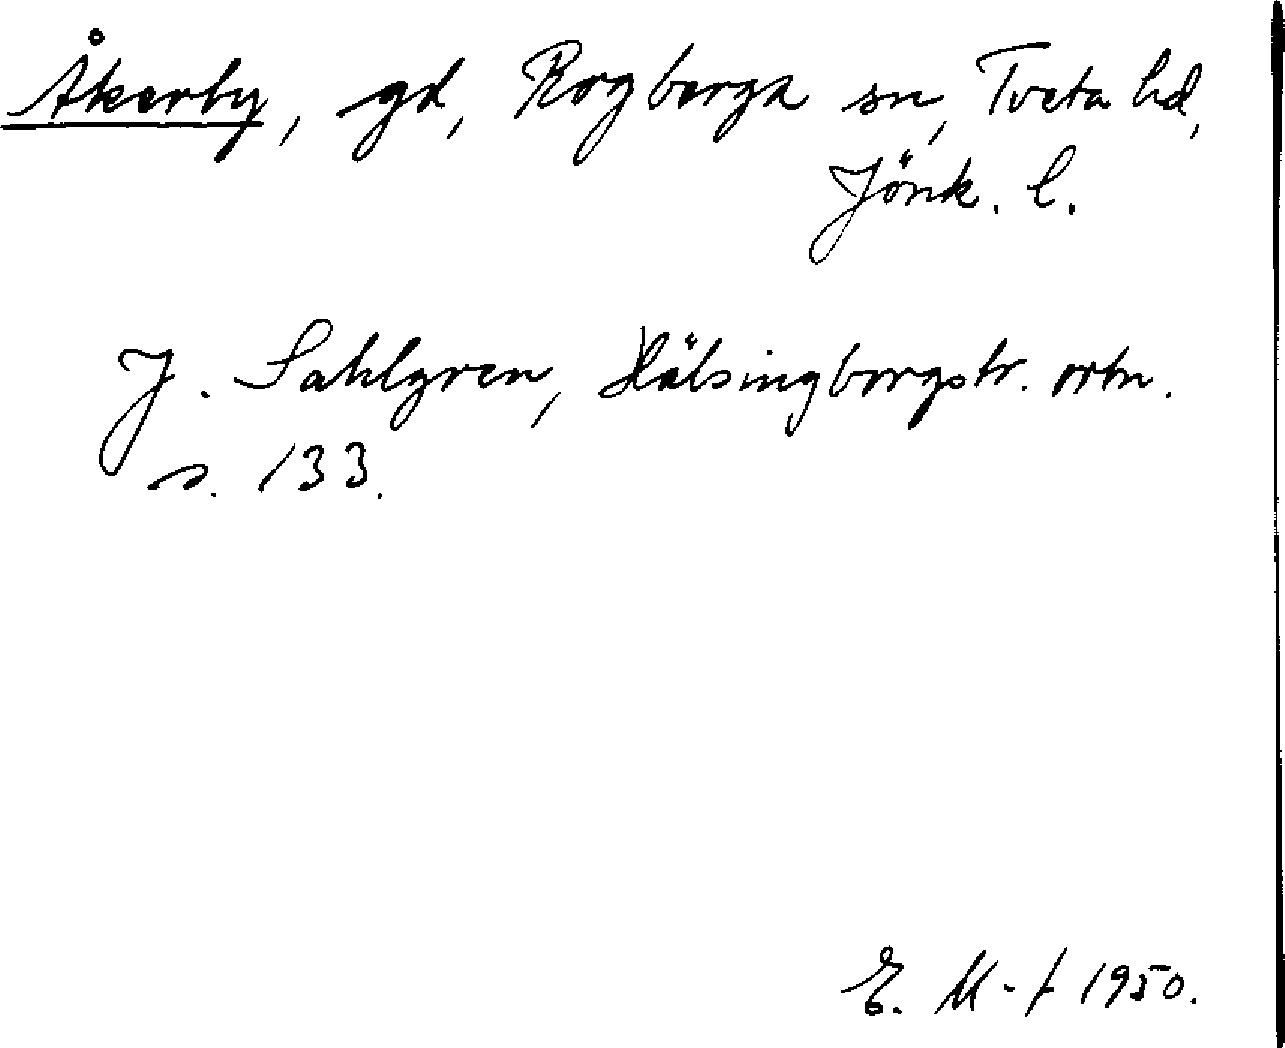 Åkerby, gd, Rogberga sn, Tveta hd,
Jönk. l.
J. Sahlgren, Hälsingborgstr. ortn.
s. 133.
E. M-f 1950.